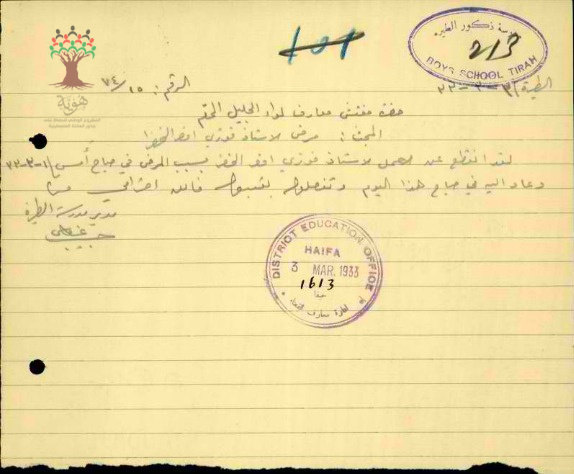 101
مدرسة ذكور الطيره
213
BOYS SCHOOL TIRAH
الطيرة ٢-٣-٣٣
الرقم: ٧٤/١٥
هوية
حضرة مفتش معارف لواء الجليل المحترم
البحث: مرض الاستاذ فوزي
لقد انقطع عن العمل الاستاذ فوزي بسبب المرض في صباح أمس ١-٣-٣٣
وعاد اليه في صباح هذا اليوم وتفضلوا بقبول فائق احترامي
مدير مدرسة الطيرة
DISTRICT EDUCATION OFFICE
HAIFA
3 MAR. 1933
1613
حيفا
ادارة معارف